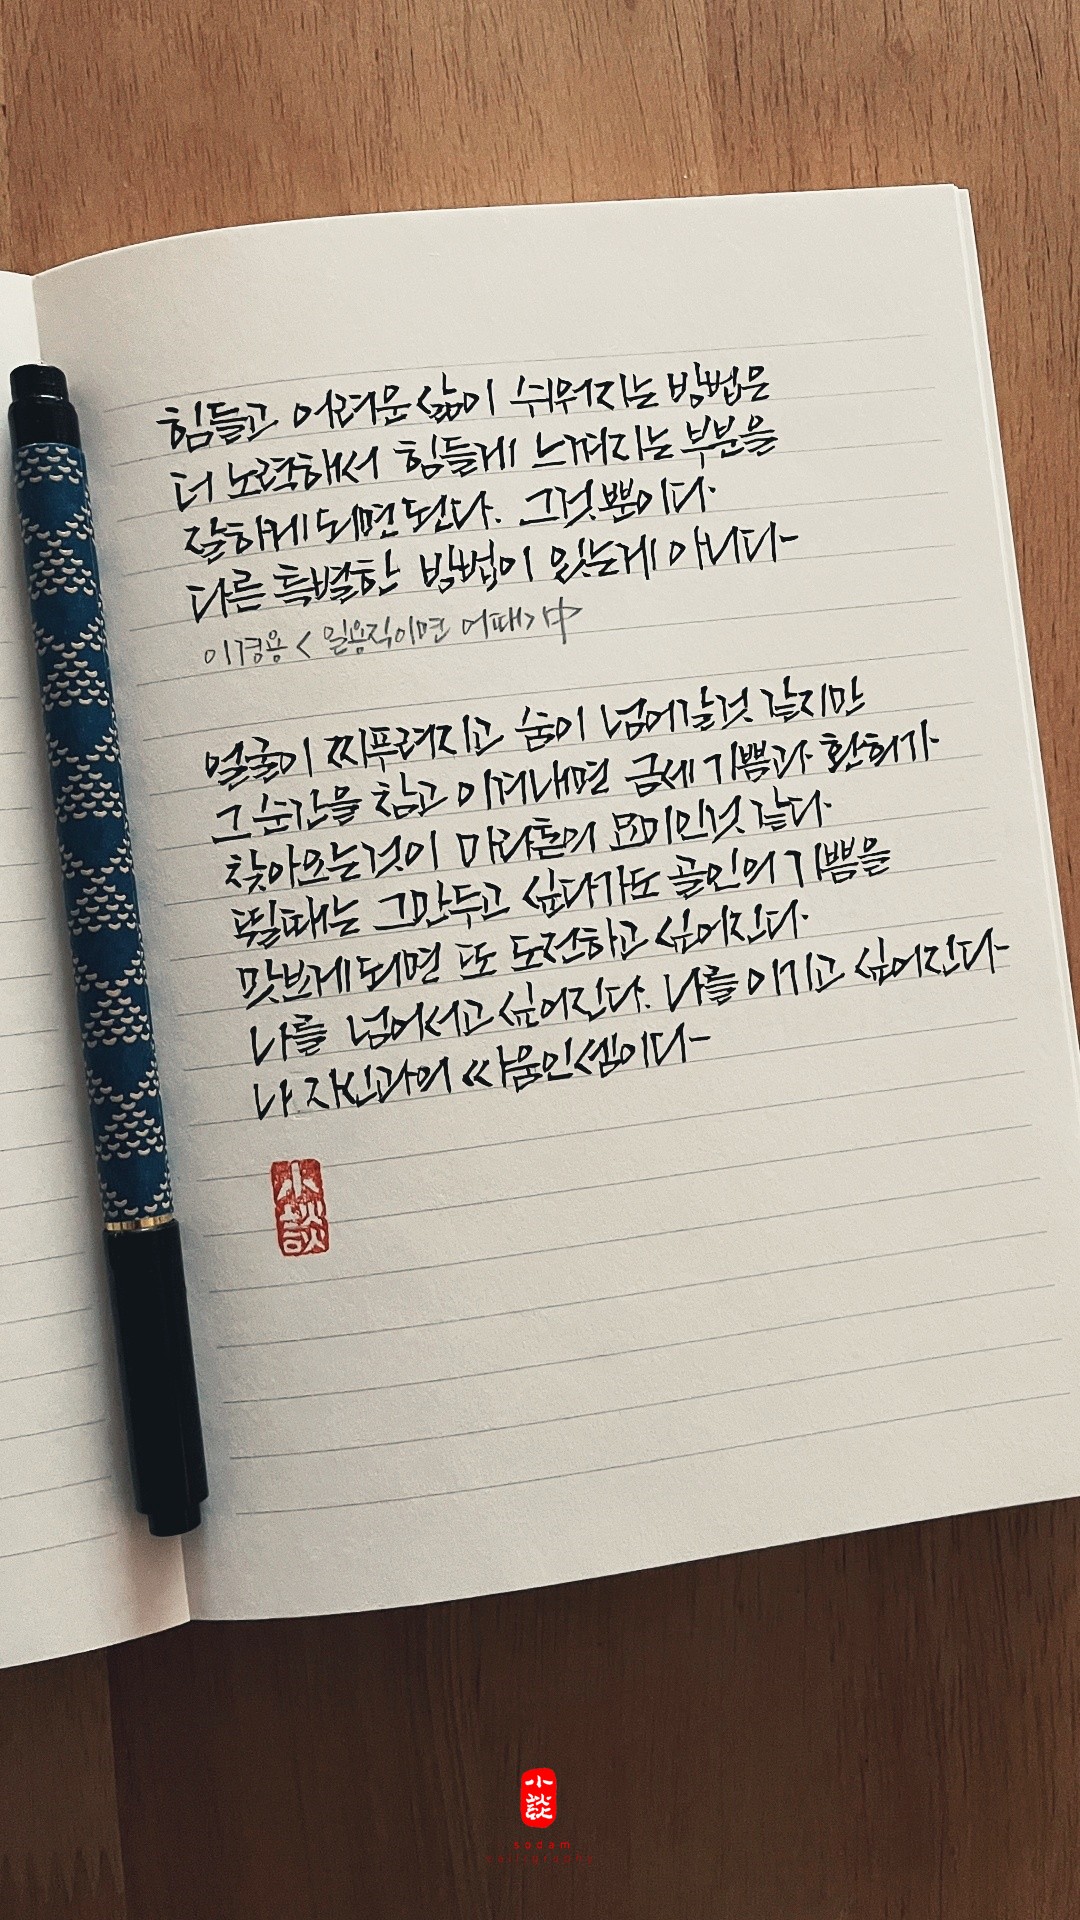 힘들고 어려운 삶이 쉬워지는 방법은
더 노력해서 힘들게 느껴지는 부분을
잘하게 되면 된다. 그것뿐이다.
다른 특별한 방법이 있는게 아니다-
이경용 < 일용직이면 어때> 中
얼굴이 찌푸려지고 숨이 넘어갈것 같지만
그 순간을 참고 이겨내면 금세 기쁨과 환희가
찾아오는것이 마라톤의 묘미인것 같다.
뛸때는 그만두고 싶다가도 골인의 기쁨을
맛보게 되면 또 도전하고 싶어진다.
나를 넘어서고 싶어진다. 나를 이기고 싶어진다-
나 자신과의 싸움인 셈이다-
小
談
小
談
sodam
calligraphy